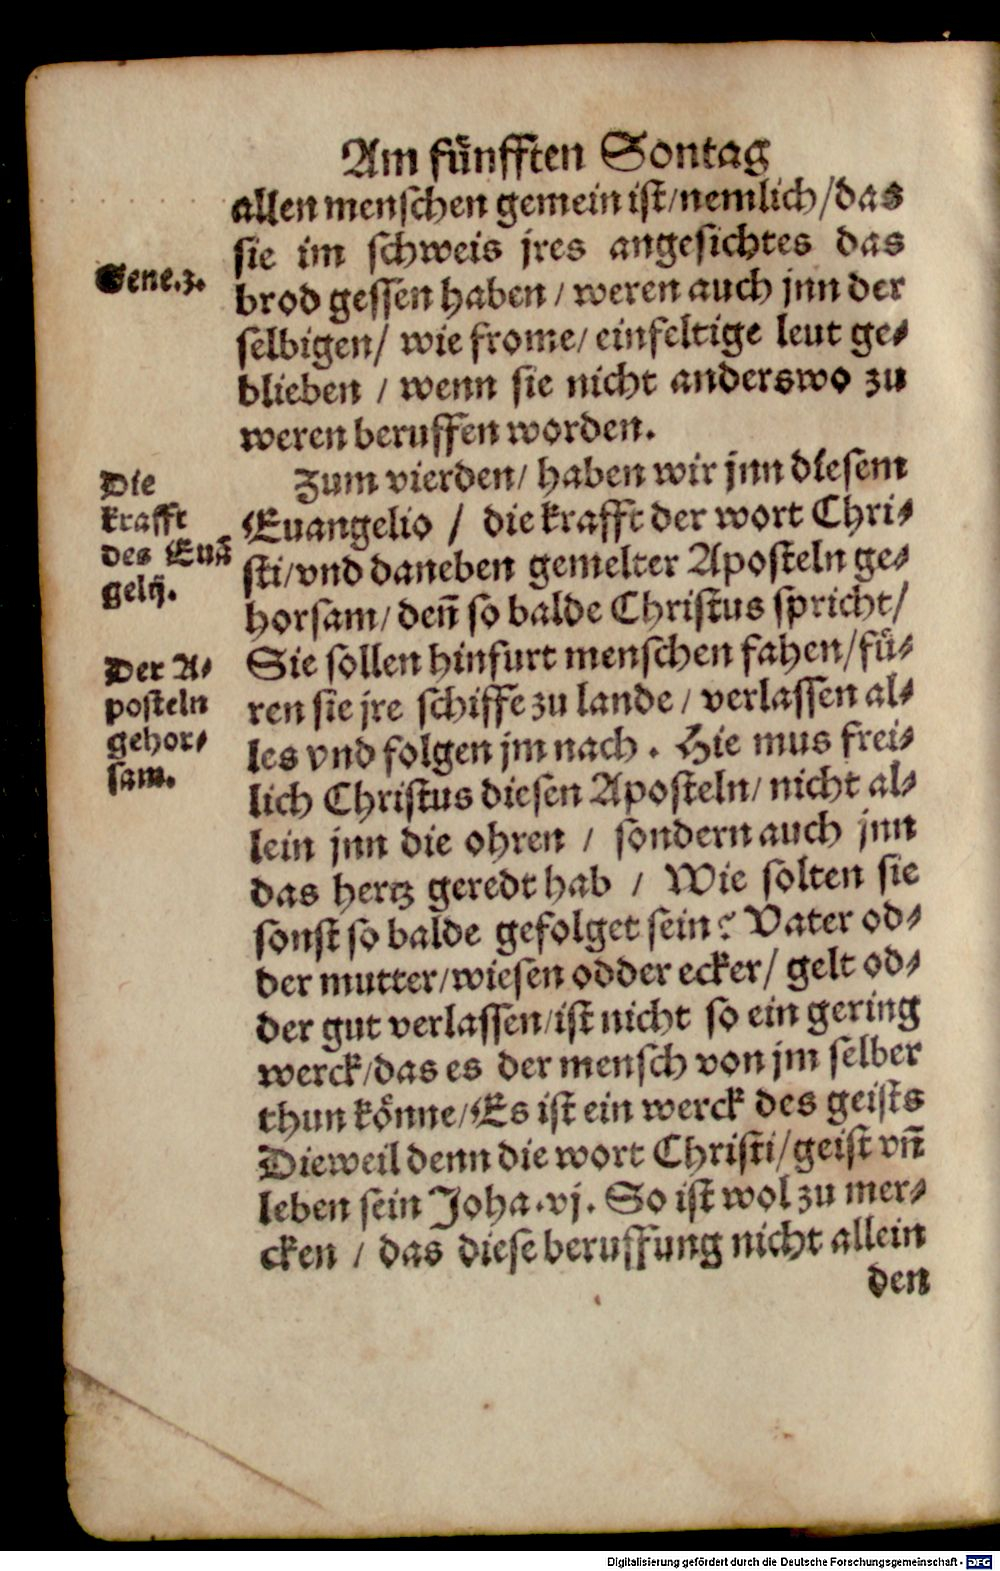 Am fünfften Sontag
allen menschen gemein ist/nemlich/das
sie im schweis jres angesichtes das
Gene.3.
brod gessen haben / weren auch jnn der
selbigen/ wie frome/ einfeltige leut ge⸗
blieben / wenn sie nicht anderswo zu
weren beruffen worden.
Zum vierden/ haben wir jnn diesem
Die
krafft
des Euā
gelij.
Euangelio / die krafft der wort Chri⸗
sti/vnd daneben gemelter Aposteln ge⸗
horsam/ deñ so balde Christus spricht/
Der A⸗
posteln
gehor⸗
sam.
Sie sollen hinfurt menschen fahen/fü⸗
ren sie jre schiffe zu lande / verlassen al⸗
les vnd folgen jm nach . Hie mus frei⸗
lich Christus diesen Aposteln/ nicht al⸗
lein jnn die ohren / sondern auch jnn
das hertz geredt hab / Wie solten sie
sonst so balde gefolget sein? Vater od⸗
der mutter/wiesen odder ecker/ gelt od⸗
der gut verlassen/ist nicht so ein gering
werck/das es der mensch von jm selber
thun könne/Es ist ein werck des geists
Dieweil denn die wort Christi/geist vñ
leben sein Joha.vj. So ist wol zu mer⸗
cken / das diese beruffung nicht allein
den
Digitalisierung gefördert durch die Deutsche Forschungsgemeinschaft - DFG